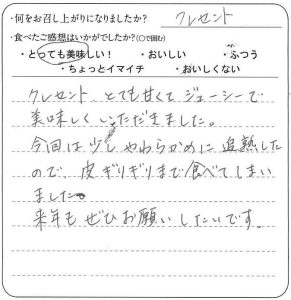 ・何をお召し上がりになりましたか? クレセント
・食べたご感想はいかがでしたか?(○で囲む)
・とっても美味しい! ・おいしい ・ふつう
・ちょっとイマイチ ・おいしくない
クレセント、とても甘くてジューシーで
美味しくいただきました。
今回は少しやわらかめに追熟した
ので、皮ギリギリまで食べてしまい
ました。
来年もぜひお願いしたいです。